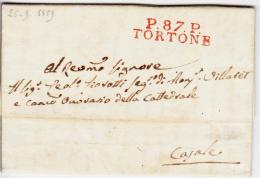 25-9-1809
P.87.P.
TORTONE
Al Revmo Signore
Il Sigr Teolo Fiorotti Segrio di Monsr Villaret
e Canco Onorario della Cattedrale
Casale